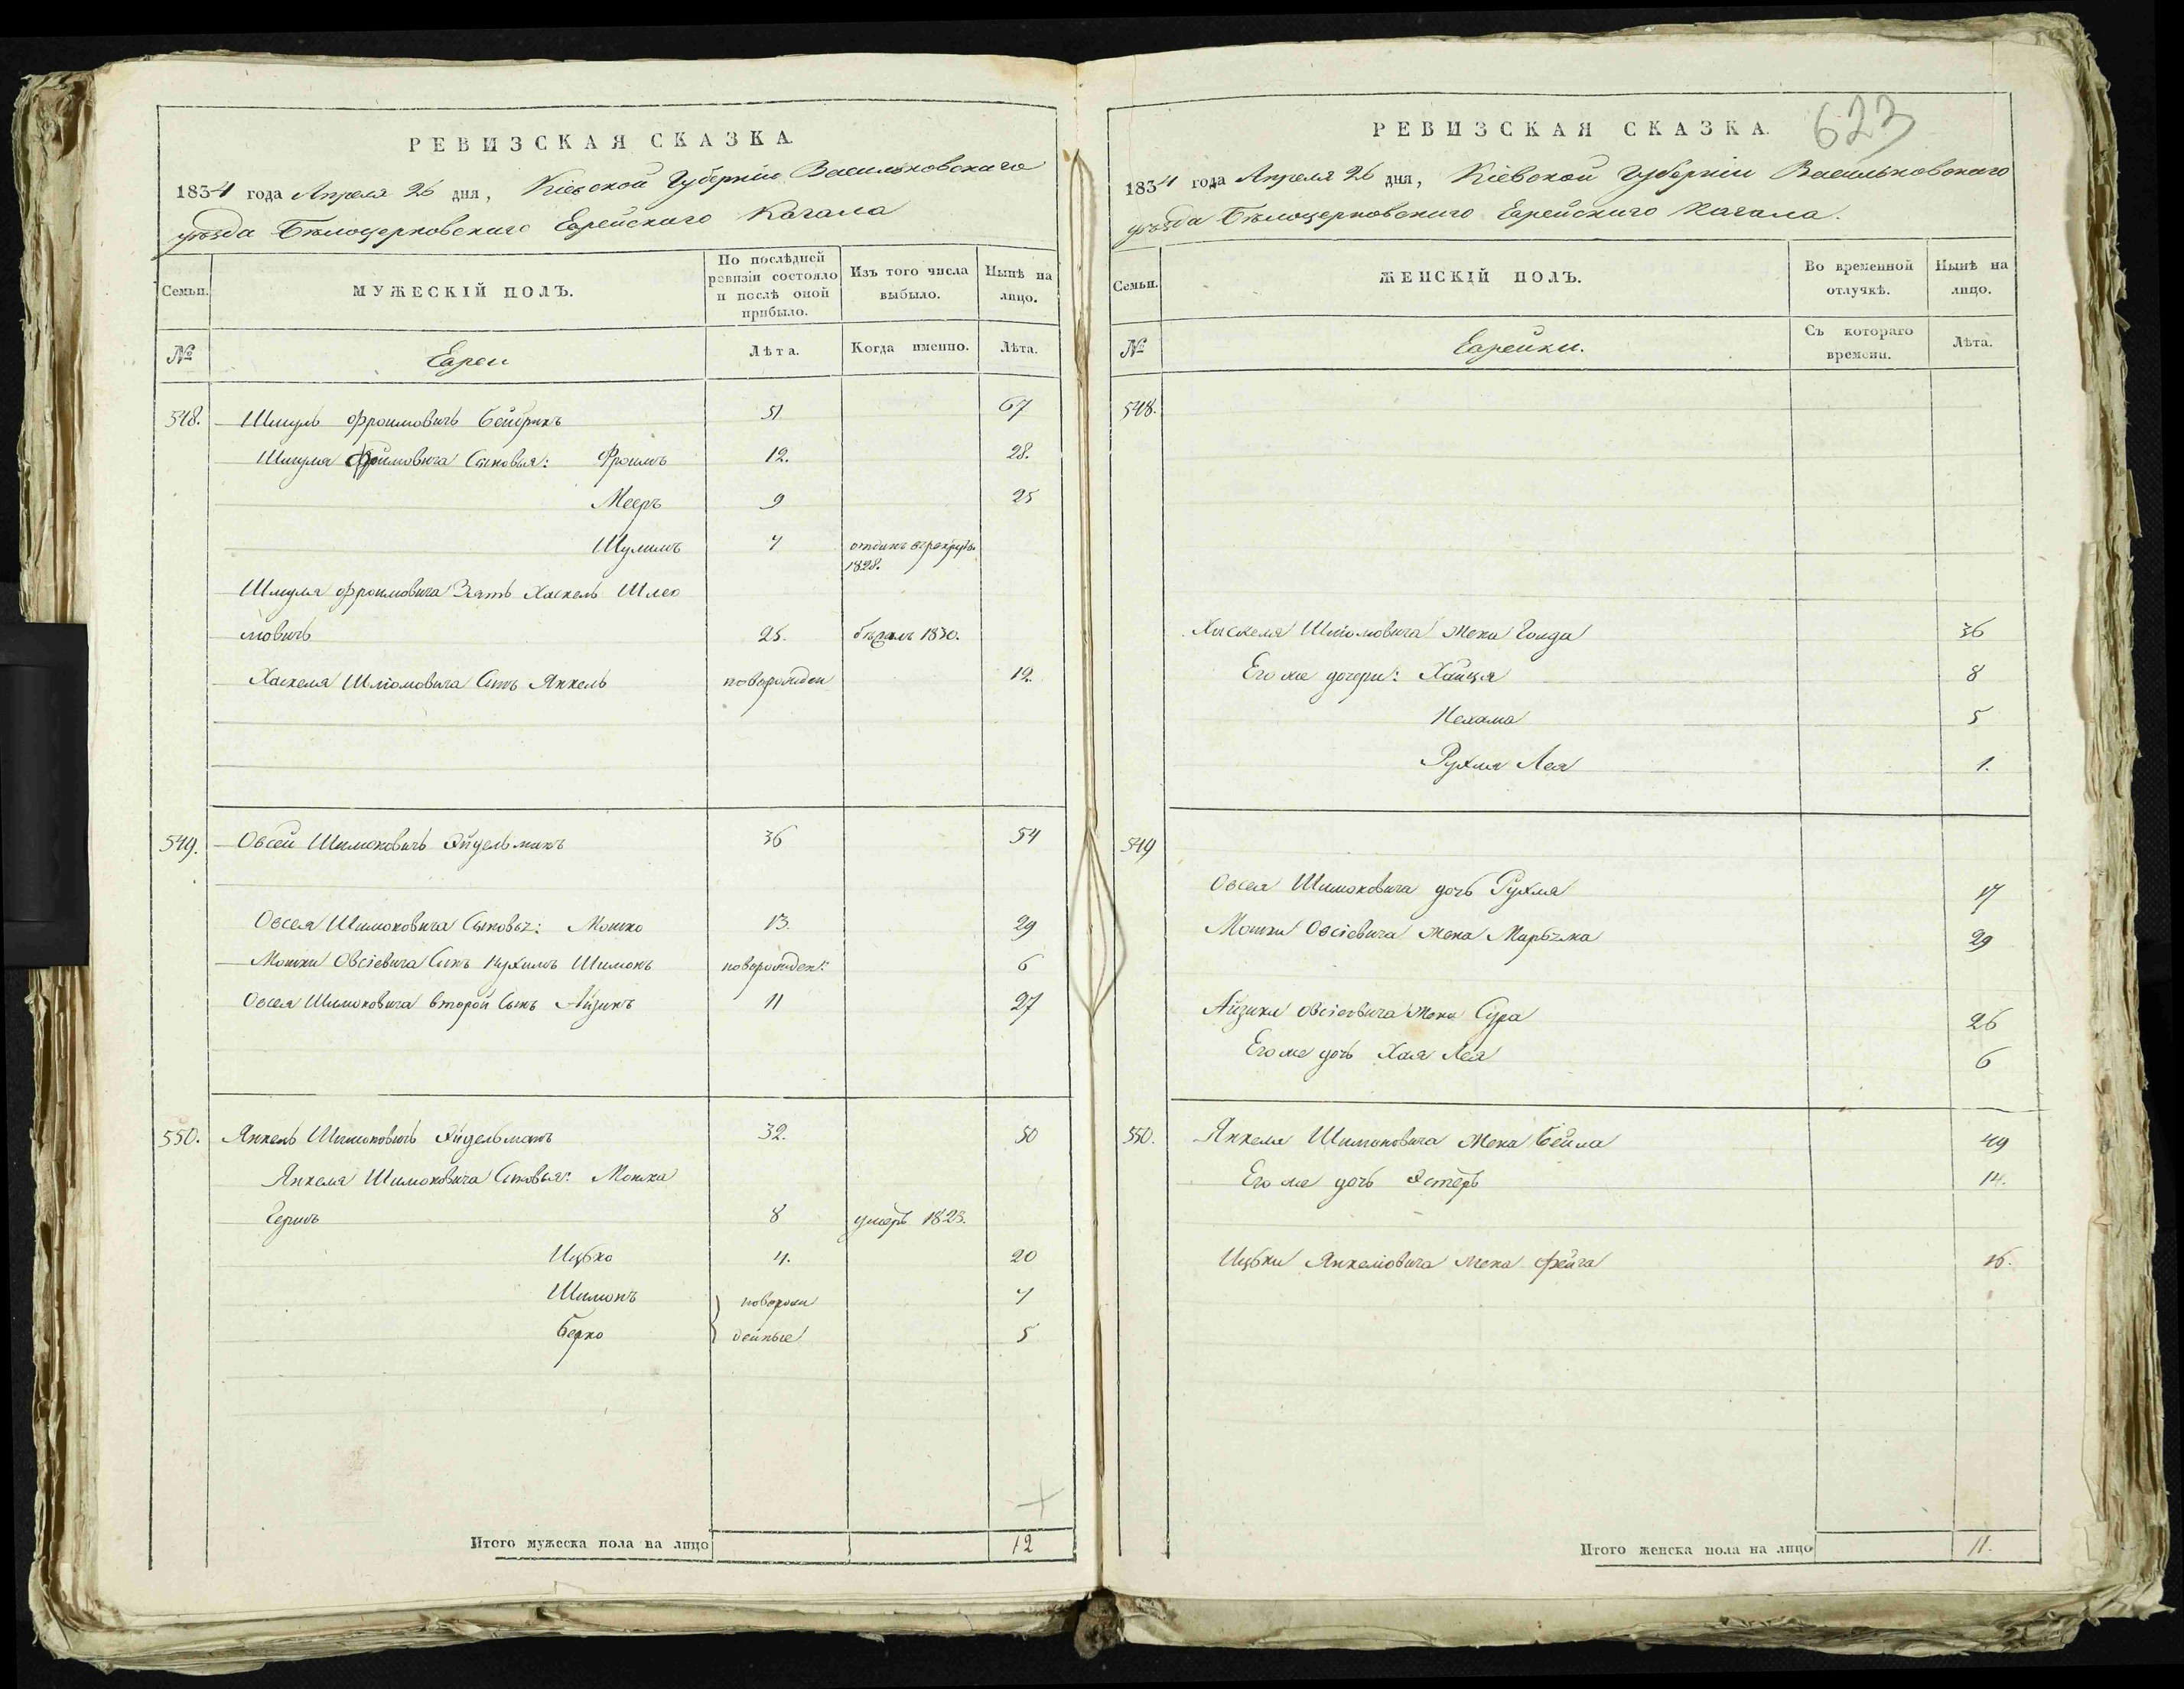 РЕВИЗСКАЯ СКАЗКА.
1834 года Апреля 26 дня, Кіевской Губерніи Васильковскаго
уѣзда Бѣлоцерковскаго Еврейскаго Кагала
Семьи.
МУЖЕСКІЙ ПОЛЪ.
По послѣдней ревизіи состояло и послѣ оной прибыло.
Изъ того числа выбыло.
Нынѣ на лицо.
№
Евреи
Лѣта.
Когда именно.
Лѣта.
548. Шмуль Фроимовичъ 51 67
Шмуля Фроимовича Сыновья: Фроимъ 12. 28.
Мееръ 9 25
Шулимъ 7 отданъ въ рекруты
1828.
Шмуля Фроимовича Зять Хаскель Шлео
мовичъ 25. бѣжалъ 1830.
Хаскеля Шліомовича Сынъ Янкель новорожден 12.
549. Овсей Шимоновичъ Эйдельманъ 36 54
Овсея Шимоновича Сыновья: Мошко 13. 29
Мошки Овсіевича Сынъ Нухимъ Шимонъ новорожден: 6
Овсея Шимоновича второй Сынъ Айзикъ 11 27
550. Янкель Шимоновичъ Эйдельманъ 32. 50
Янкеля Шимоновича Сыновья: Мошка
Гершъ 8 умеръ 1823.
Ицько 4. 20
Шимонъ новорож 7
Берко денные 5
Итого мужеска пола на лицо 12
623
РЕВИЗСКАЯ СКАЗКА.
1834 года Апреля 26 дня, Кіевской Губерніи Васильковскаго
уѣзда Бѣлоцерковскаго Еврейскаго Кагала.
Семьи.
ЖЕНСКІЙ ПОЛЪ.
Во временной отлучкѣ.
Нынѣ на лицо.
№
Еврейки.
Съ котораго времени.
Лѣта.
548.
Хаскеля Шліомовича жена Голда 36
Его же дочери: Хайця 8
Нехама 5
Рухля Лея 1.
549
Овсея Шимоновича дочь Рухля 17
Мошки Овсіевича жена 29
Айзика Овсіевича жена Сура 26
Его же дочь Хая Лея 6
550. Янкеля Шимоновича жена Бейла 49
Его же дочь Эстеръ 14.
Ицьки Янкеліовича жена Фейга 16.
Итого женска пола на лицо 11.